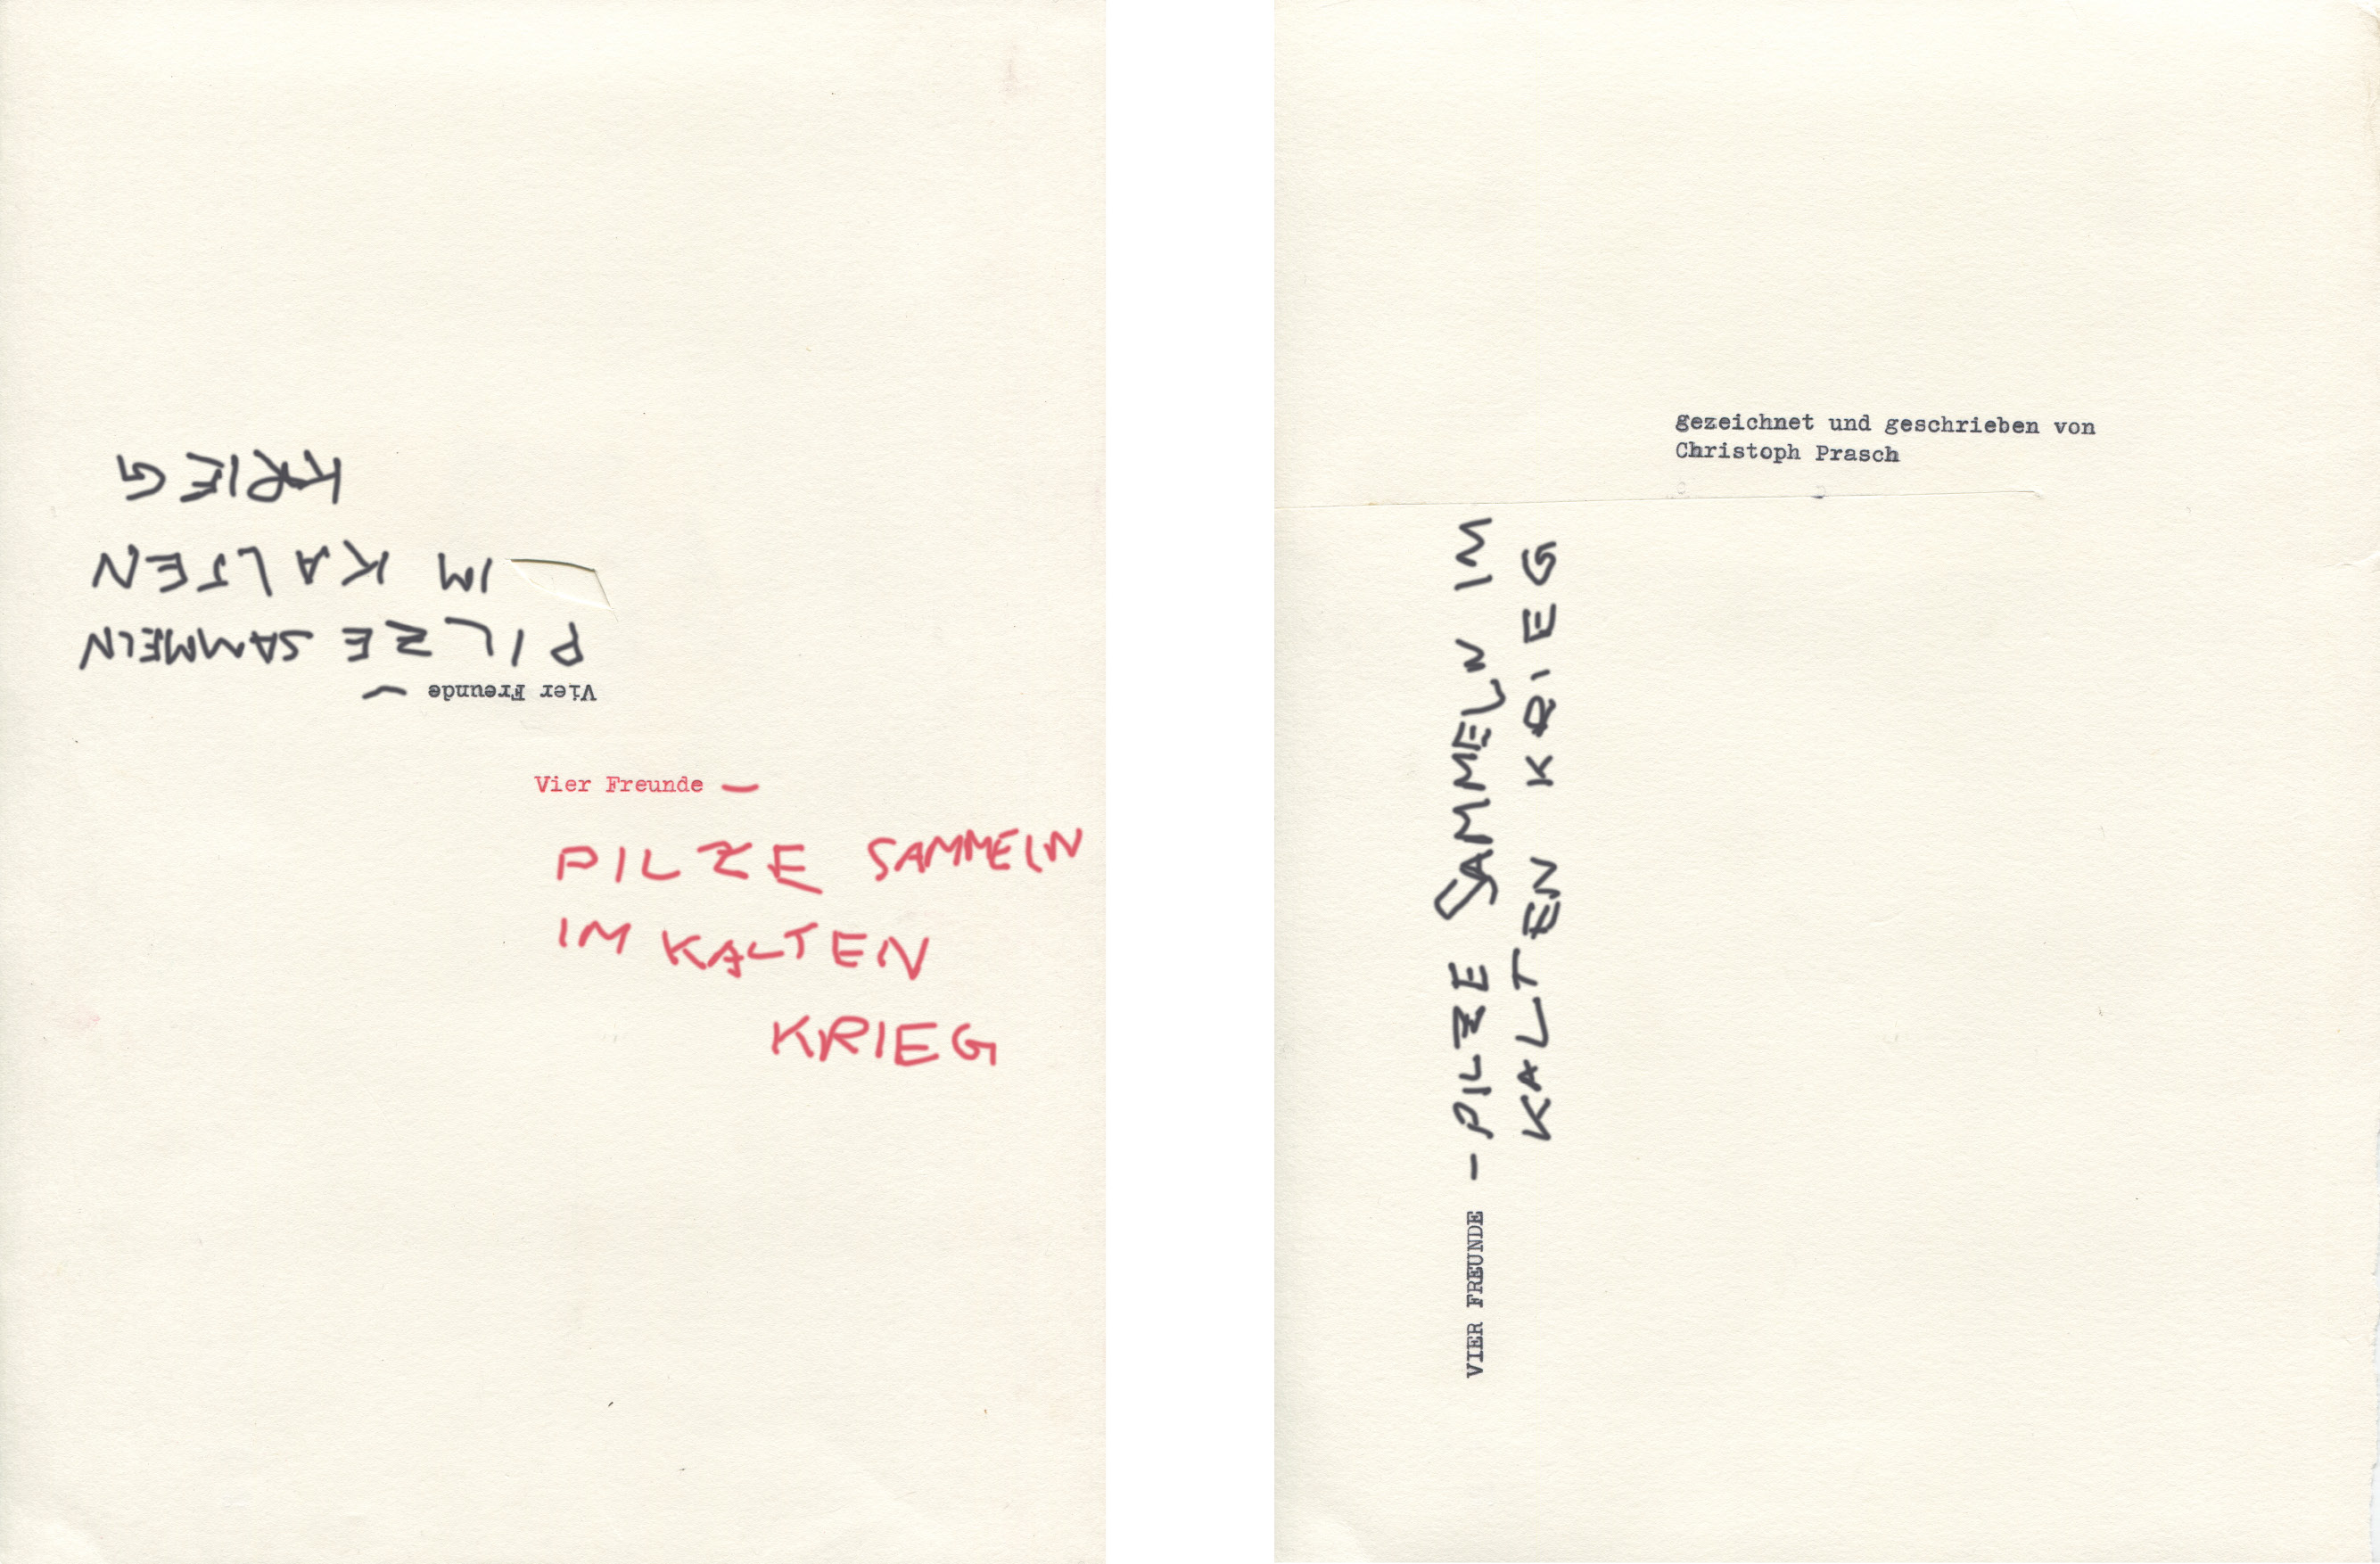 Vier Freunde —
PILZE SAMMELN
IM KALTEN
KRIEG
Vier Freunde —
PILZE SAMMELN
IM KALTEN
KRIEG
gezeichnet und geschrieben von
Christoph Prasch
VIER FREUNDE — PILZE SAMMELN IM
KALTEN KRIEG